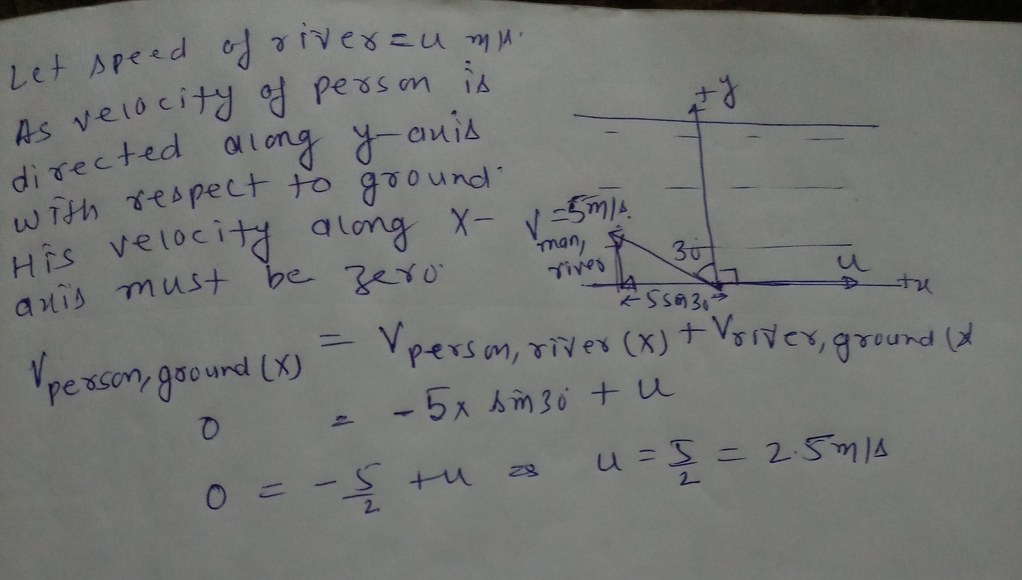 Let speed of river = u m/s.
As velocity of person is
directed along y-axis
with respect to ground.
His velocity along x-
axis must be zero.
+y
V = 5m/s.
man,
river
30°
u
+x
5 sin 30°
V person, ground (x) = V person, river (x) + V river, ground (x
0 = - 5 x sin 30° + u
0 = - 5/2 + u ⇒ u = 5/2 = 2.5 m/s